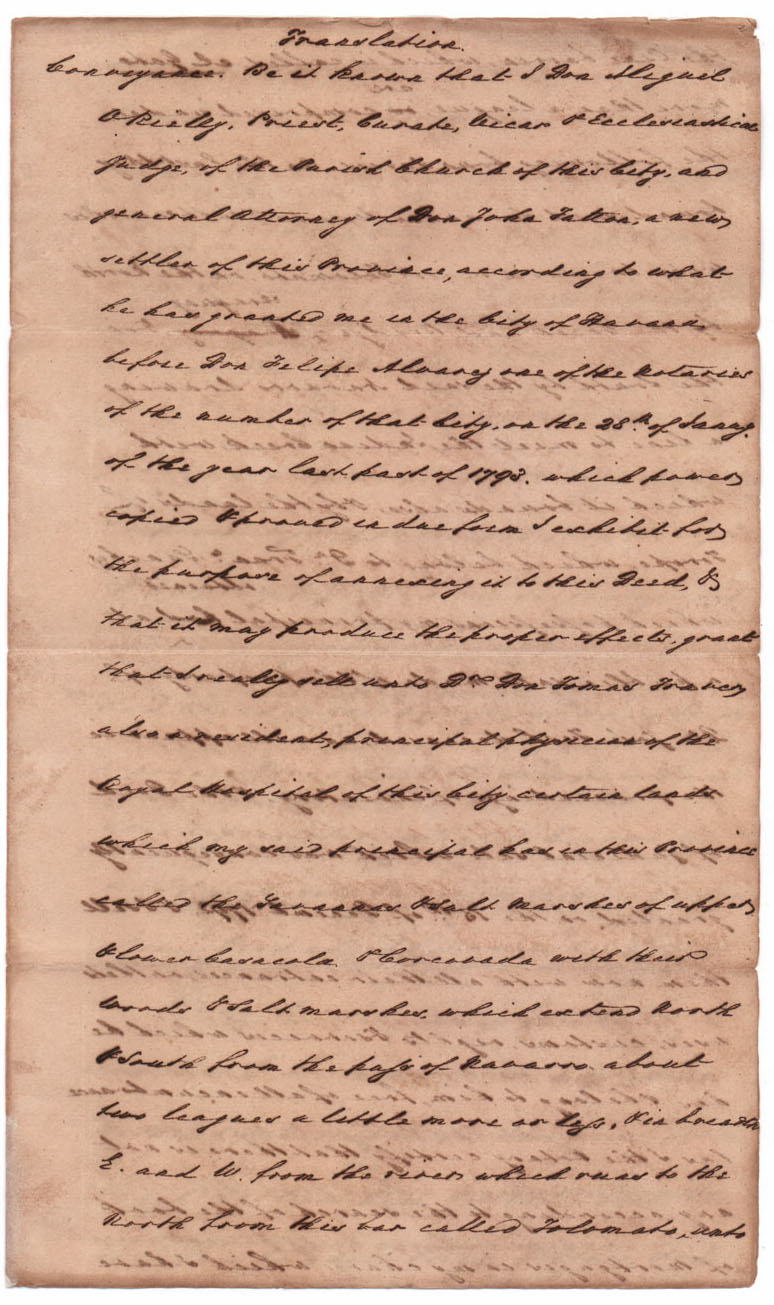 Translation.
Conveyance. Be it known that I Don Miguel
O Rielly, Priest, Curate, Vicar & Ecclesiastical
Judge, of the Parish Church of this City, and
general Attorney of Don John Fatton, a new
settler of this Province, according to what
he has granted me in the City of Havana
before Don Felipe Alvarez one of the Notaries
of the number of that City, on the 28th of Janry.
of the year last past of 1793. which power
copied & proved in due form I exhibit for
the purpose of annexing it to this Deed, &
that it may produce the proper effects, grant
that I really sell unto Dn. Don Tomas Traver
also a resident, principal physician of the
Royal Hospital of this City certain lands
which my said principal has in this Province
called the Savannas & Salt Marshes of upper
& lower Casacola & Corcovada with their
woods & Salt marshes, which extend North
& South from the pass of Navarro about
two leagues a little more or less, & in breadth
E. and W. from the river which runs to the
North from this bar called Tolomato, unto